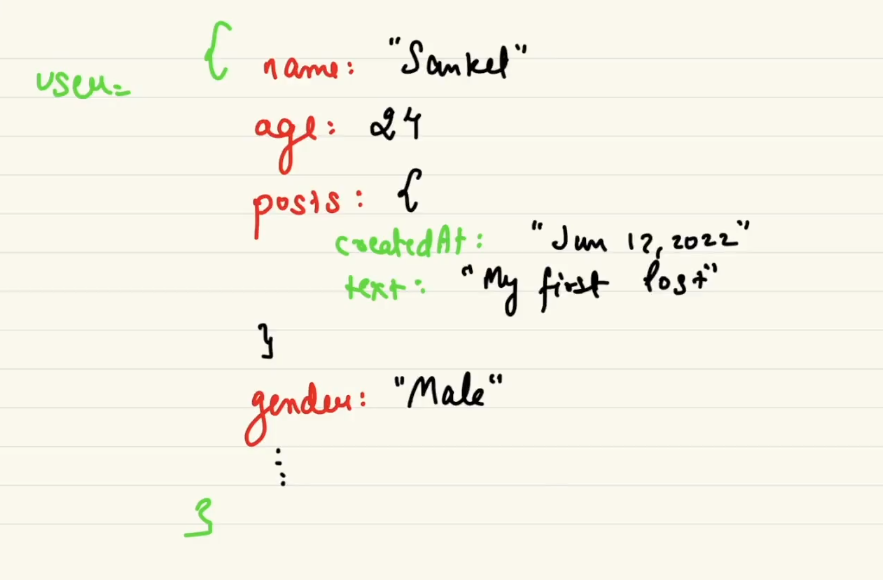 user = { name: "Sanket"
age: 24
posts: {
createdAt: "Jun 12, 2022"
text: "My first Post"
}
gender: "Male"
⋮
}